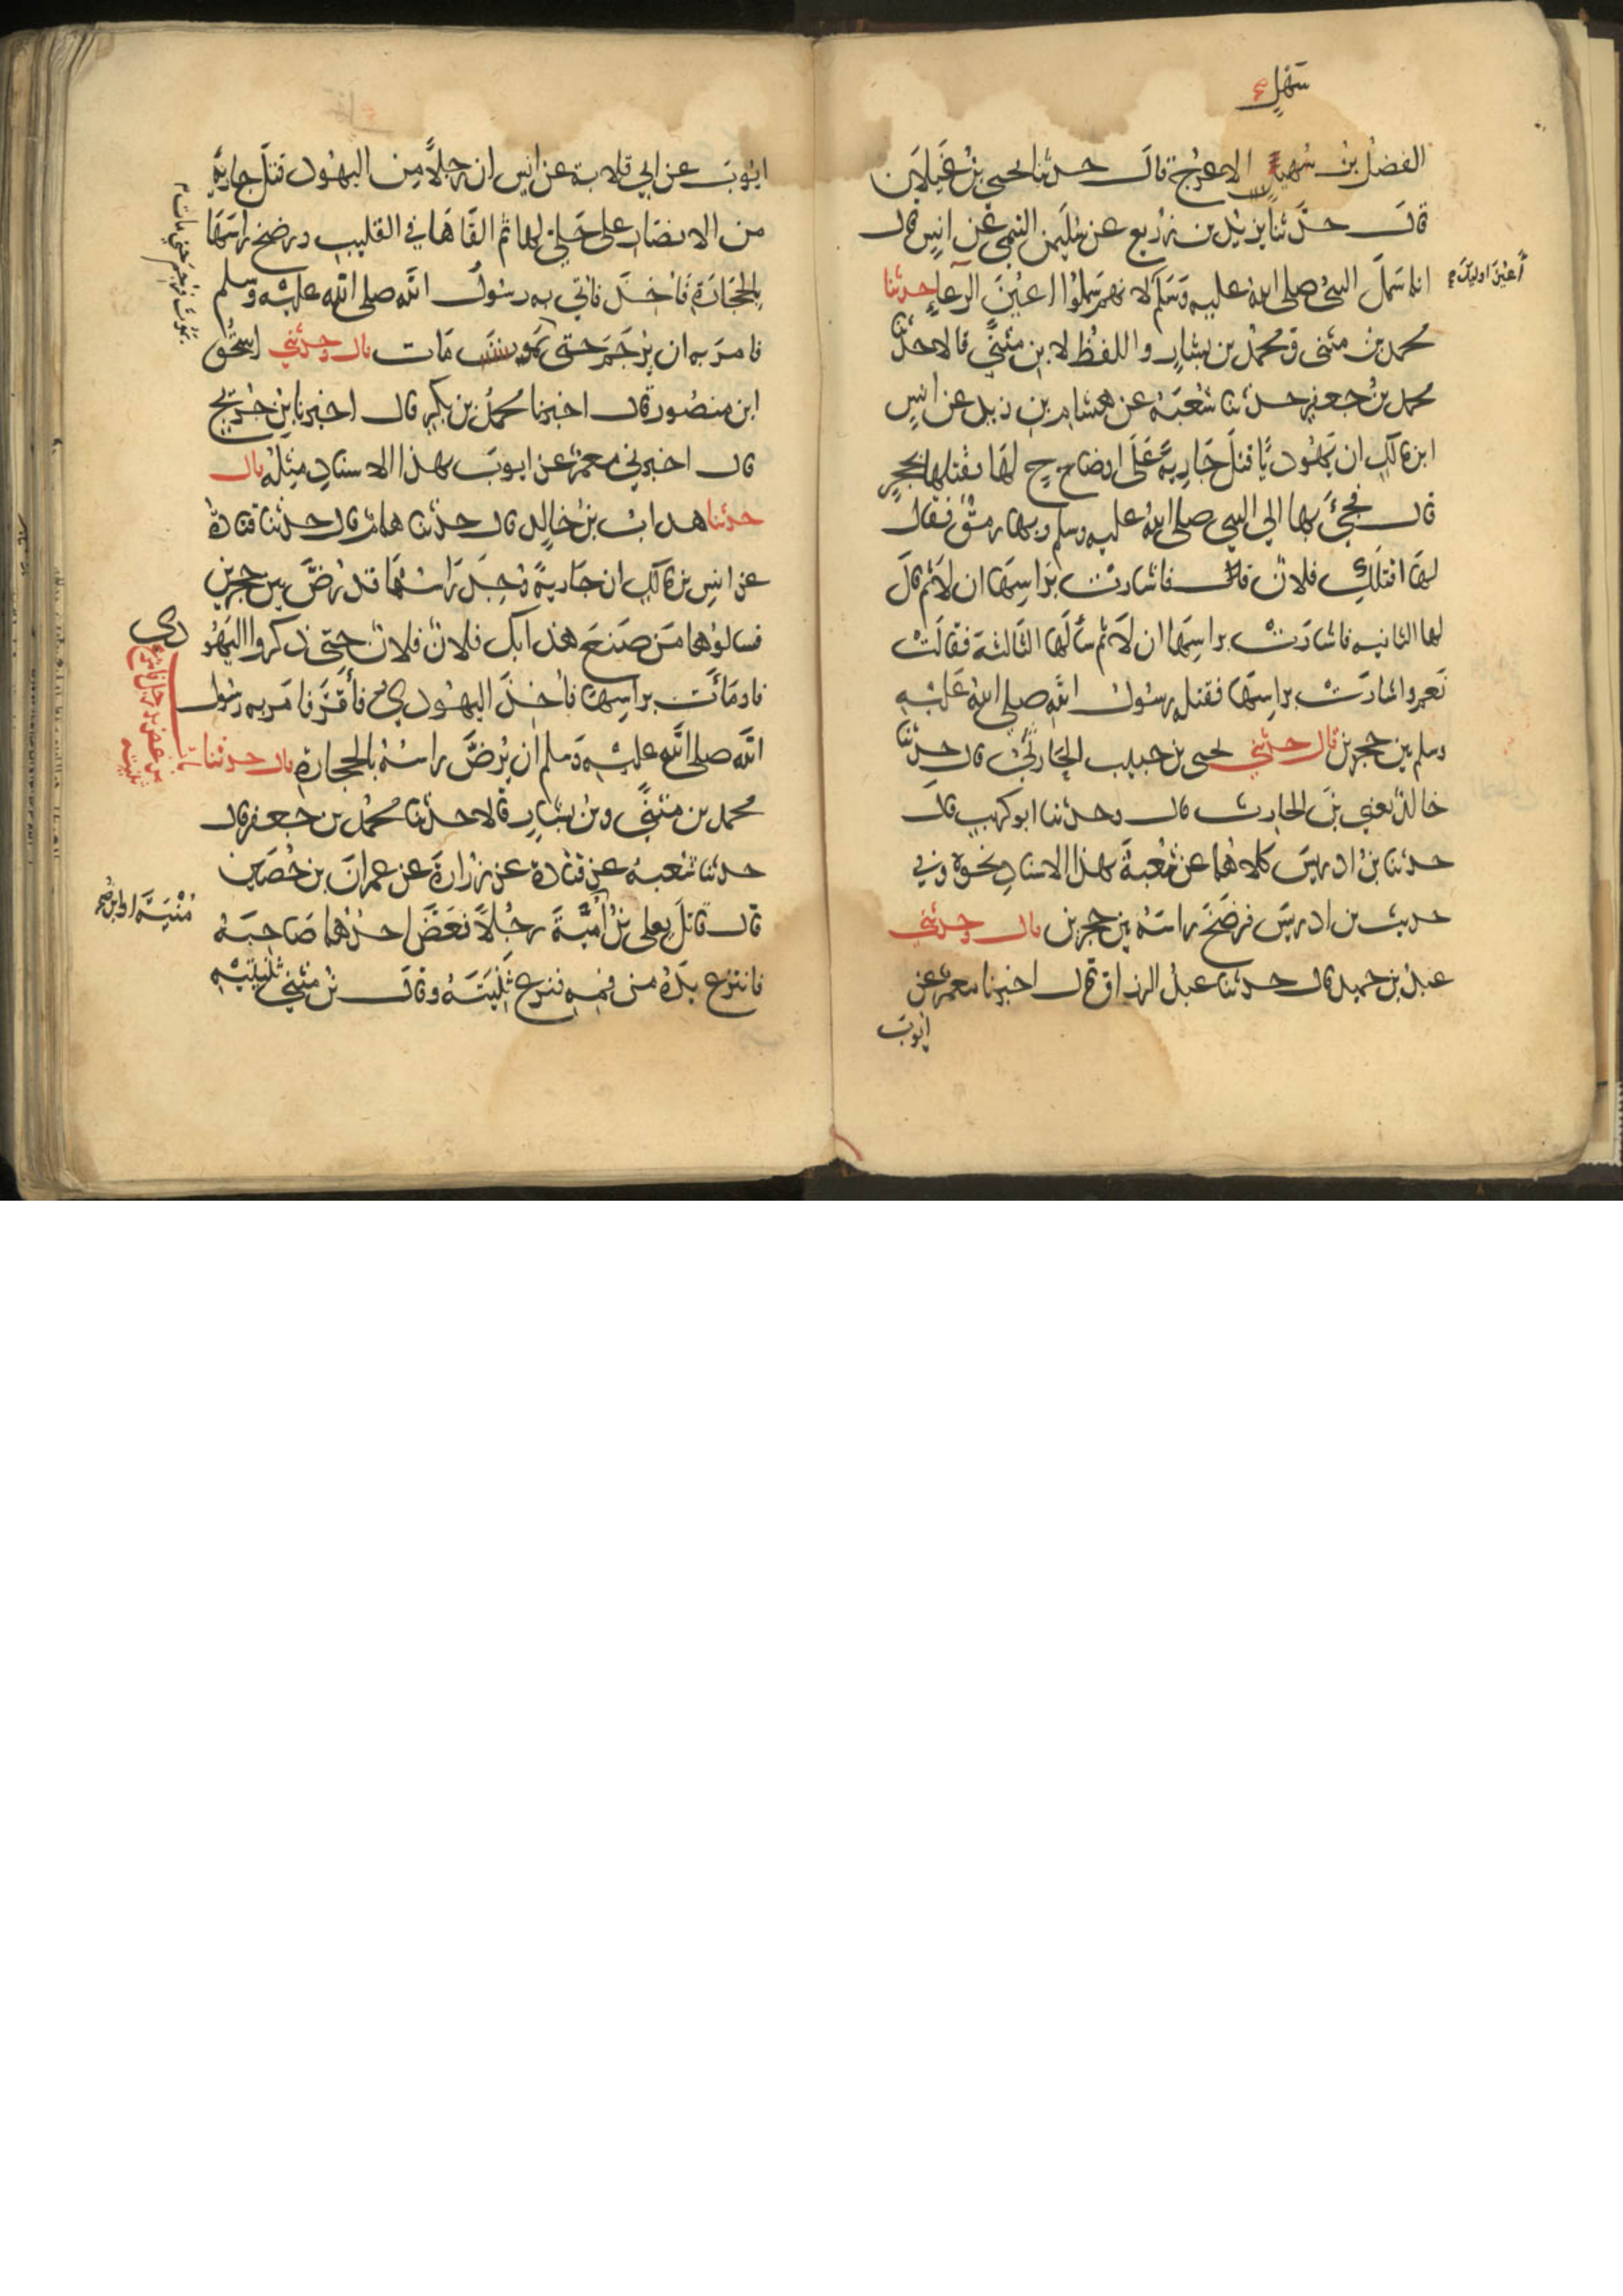 سهل
الفضل بن سهيل الاعرج قال حدثنا يحيى بن غيلان
قال حدثنا يزيد بن زريع عن سليمن التيمي عن انس قال
انما سمل النبي صلى الله عليه وسلم لانهم سملوا اعين الرعاء حدثنا
أعين اوليك
محمد بن مثنى ومحمد بن بشار واللفظ لابن مثنى قالا حدثنا
محمد بن جعفر حدثنا شعبة عن هشام بن زيد عن انس
ابن مالك ان يهوديا قتل جارية على اوضاح لها فقتلها بحجر
قال فجيء بها الى النبي صلى الله عليه وسلم وبها رمق فقال
لها اقتلك فلان قال فاشارت براسها ان لا ثم قال
لها الثانيه فاشارت براسها ان لا ثم سالها الثالثة فقالت
نعم واشارت براسها فقتله رسول الله صلى الله عليه
وسلم بين حجرين قال حدثني يحيى بن حبيب الحارثي قال حدثنا
خالد يعني بن الحارث قال وحدثنا ابو كريب قال
حدثنا بن ادريس كلاهما عن شعبة بهذا الاسناد نحوه وفي
حديث بن ادريس فرضخ راسه بين حجرين قال وحدثني
عبد بن حميد قال حدثنا عبد الرزاق قال اخبرنا معمر عن
ايوب
ايوب عن ابي قلابة عن انس ان رجلا من اليهود قتل جارية
من الانصار على حلي لها ثم القاها في القليب ورضخ راسها
بالحجارة فاخذ فاتي به رسول الله صلى الله عليه وسلم
فامر به ان يرجم حتى يموت مات قال وحدثني اسحق
يموت فرجم حتى مات
ابن منصور قال اخبرنا محمد بن بكر قال اخبرنا بن جريج
قال اخبرني معمر عن ايوب بهذا الاسناد مثله قال
حدثنا هداب بن خالد قال حدثنا همام قال حدثنا قتادة
عن انس بن مالك ان جارية وجد راسها قد رض بين حجرين
فسالوها من صنع هذا بك فلان فلان حتى ذكروا اليهو
دي
فاومأت براسها فاخذ اليهودي فأقر فامر به رسول
الله صلى الله عليه وسلم ان يرض راسه بالحجارة قال حدثنا
محمد بن مثنى وبن بشار قالا حدثنا محمد بن جعفر قال
حدثنا شعبه عن قتادة عن زرارة عن عمران بن حصين
قال قاتل يعلى بن أمية رجلا فعض احدهما صاحبه
منية او ابن
فانتزع يده من فمه فنزع ثنيته وقال بن مثنى ثنيتيه